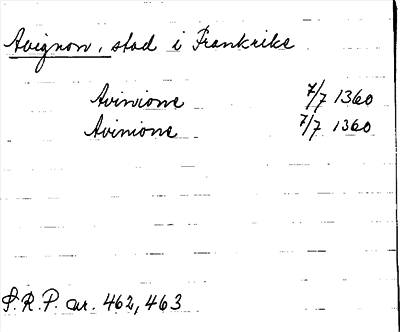 Avignon, stad i Frankrike
Avinione 7/7 1360
Avinione 7/7 1360
S.R.P. nr. 462, 463